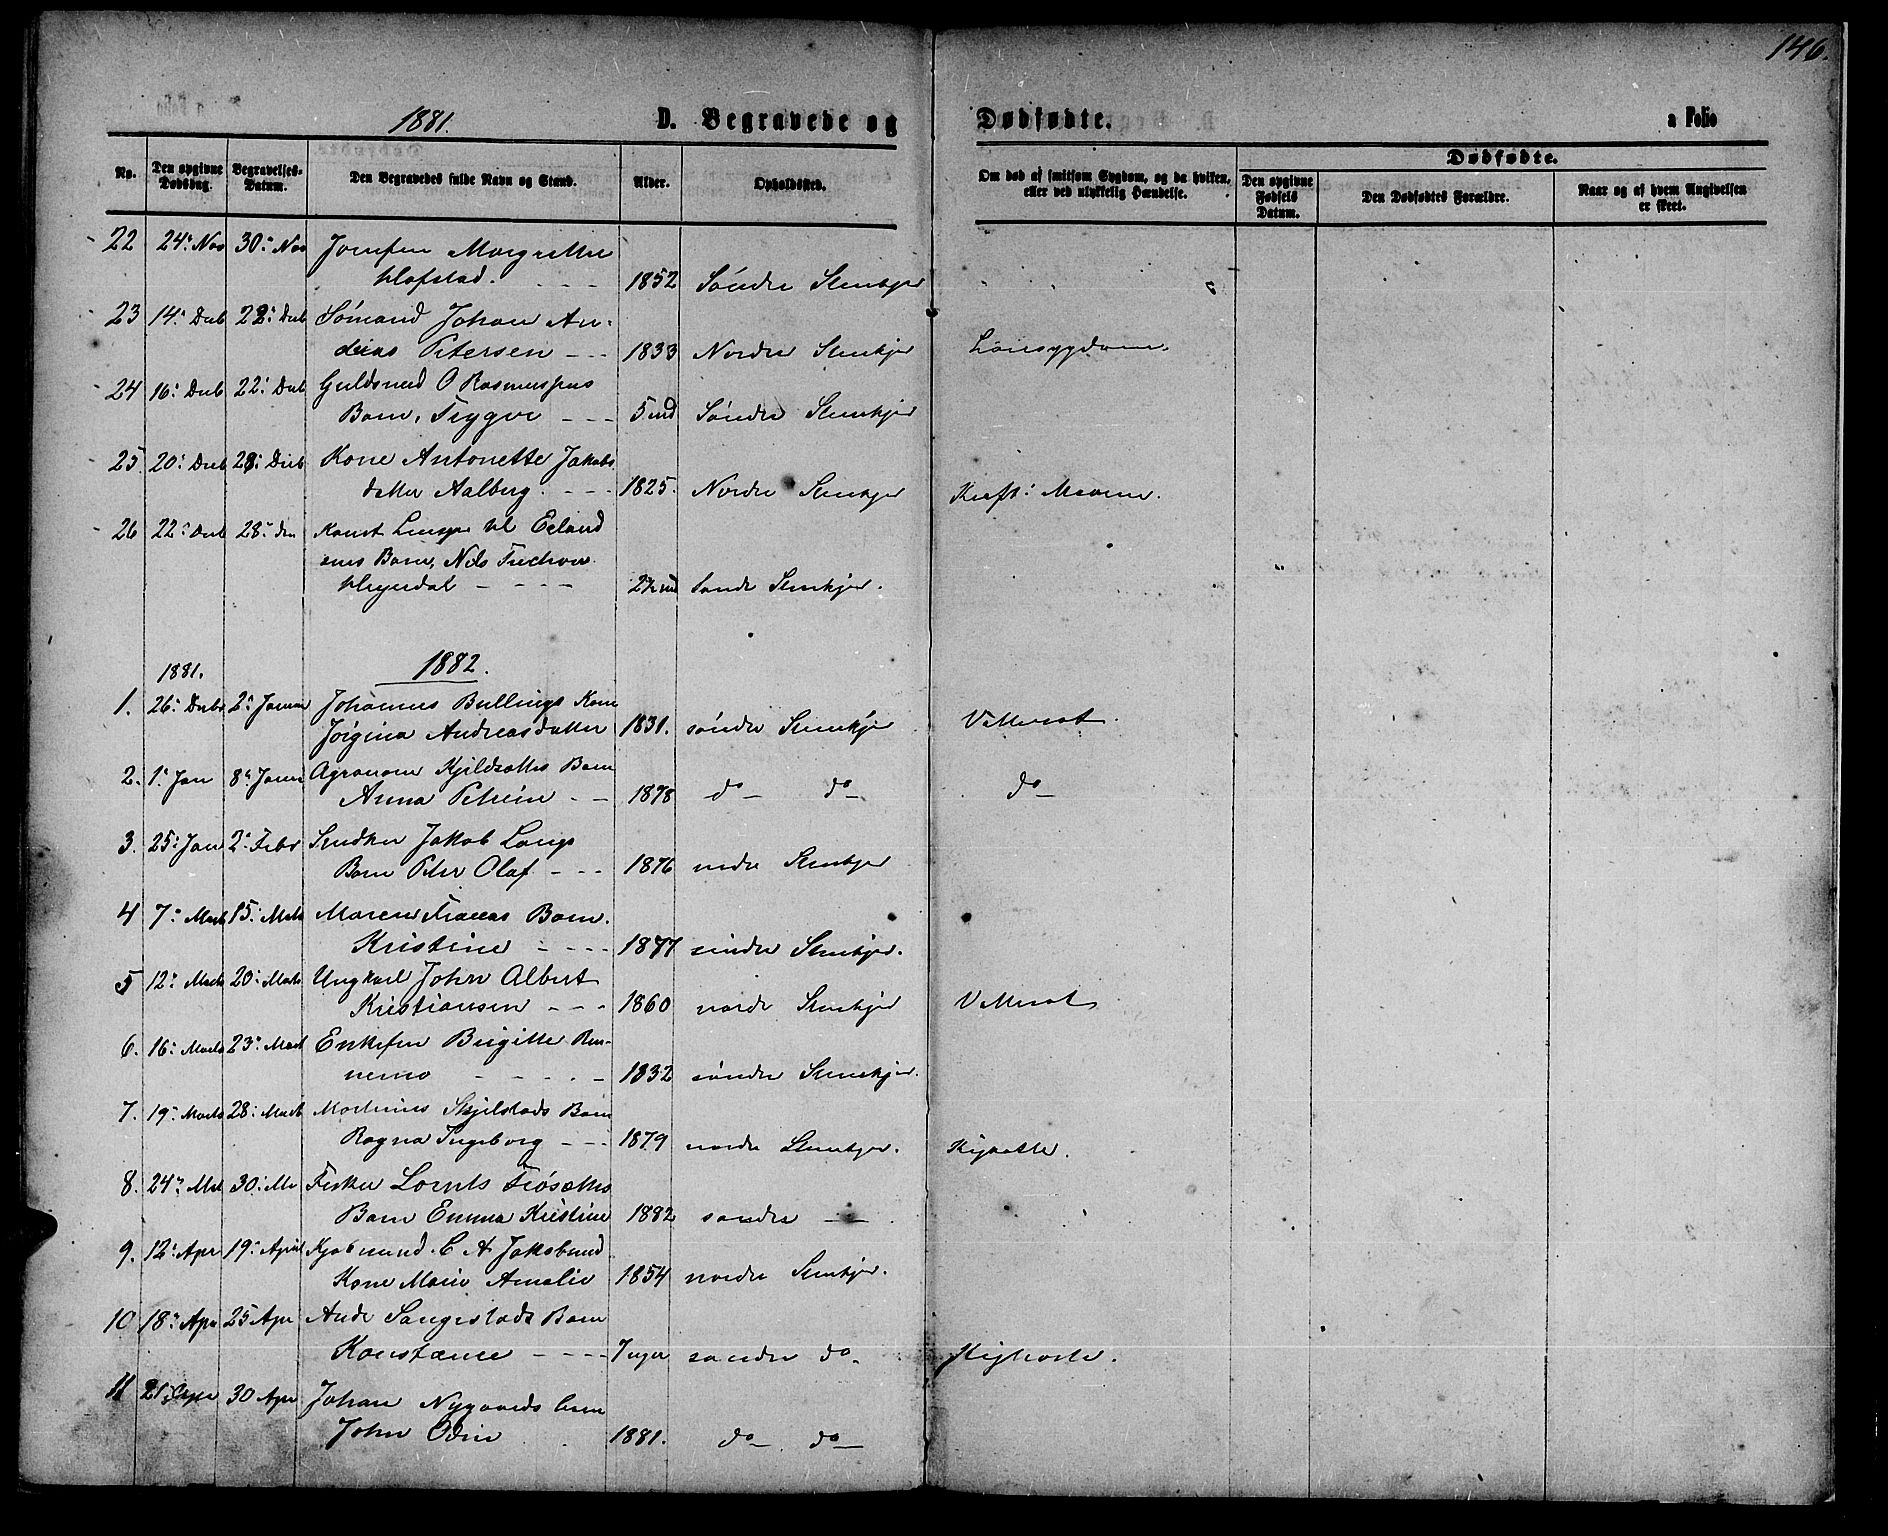 146.
1881. D. Begravede og Dødfødte. a Folio
No. Den opgivne Dødsdag. Begravelses-Datum. Den Begravedes fulde Navn og Stand. Alder. Opholdssted. Om død af smitsom Sygdom, og da hvilken, eller ved ulykkelig Hændelse. Dødfødte.
Den opgivne Fødsels Datum. Den Dødfødtes Forældre. Naar og af hvem Angivelsen er skeet.
22 24: Nov 30: Nov Josefen Margrethe
Hofstad. 1852 Søndre Stenkjer
23 14: Deb 22: Deb Sømand Johan An-
dreas Petersen 1833 Nordre Stenkjer
24 16: Deb 22: Deb Guldsmed O Rasmussens
Barn, Trygve 5 md Søndre Stenkjer
25. 20: Deb 28: Deb Kone Antonette Jakobs
datter Aalberg. 1825. Nordre Stenkjer Kræft: Maven.
26 22: Deb 28: Den
Barn, Nils
Stenkjer.
1881. 1882.
1. 26: Debr 2: Januar Johannes Bullings Kone
Jørgina Andreasdatter 1831. søndre Stenkjer
2. 1: Jan 8: Janu Agronom Barn
Anna 1878 do do do
3. 25: Jan 2: Febr Snedker Jakob Langs
Barn Peter Olaf 1876 Stenkjer
4 7: Marts 15: Marts Maren Barn.
Kristine 1877 søndre Stenkjer.
5 12: Marts 20: Marts Ungkarl John Albert
Kristiansen 1860 nordr Stenkjer
6. 16: Marts 23: Marts Enkefru Birgitte Ren-
nemo 1832 søndre Stenkjer.
7. 19: Marts 28: Marts Martinus Skjelstads Barn
Ragna Ingeborg 1879 nordre Stenkjer. Kighoste.
8. 24: Mrt 30: Mr Fisker Lornts
Barn Emma Kristine 1882 søndre
9. 12: Apr 19: April Kjøbmand C A Jakobsens
Kone Marie Amalie 1854 nordre Stenkjer.
10 18: Apr 25 Apr Barn
Konstance 7 uger søndre do Kighoste.
11 21: Apr 30 Apr Johan Nygaards Barn
John Odin 1881. do do